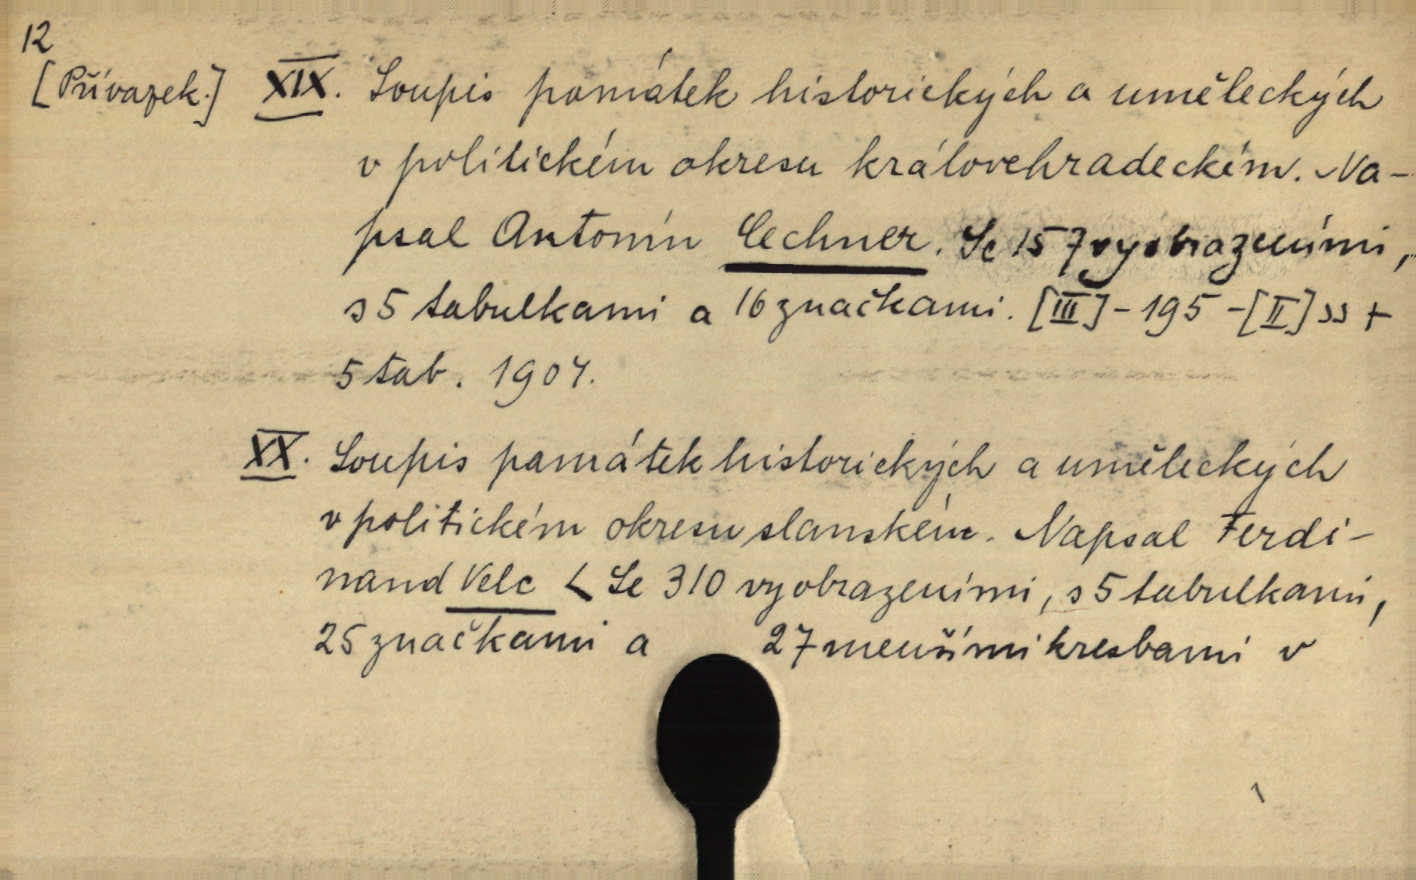 12
[Přívazek.] XIX. Soupis památek historických a uměleckých
v politickém okresu královehradeckém. Na-
psal Antonín Cechner. Se 157 vyobrazeními,
s 5 tabulkami a 16 značkami. [III] - 195 - [II] ss +
5 tab. 1904.
XX. Soupis památek historických a uměleckých
v politickém okresu slanském. Napsal Ferdi-
nand Velc < Se 310 vyobrazeními, s 5 tabulkami,
25 značkami a 27 menšími kresbami v